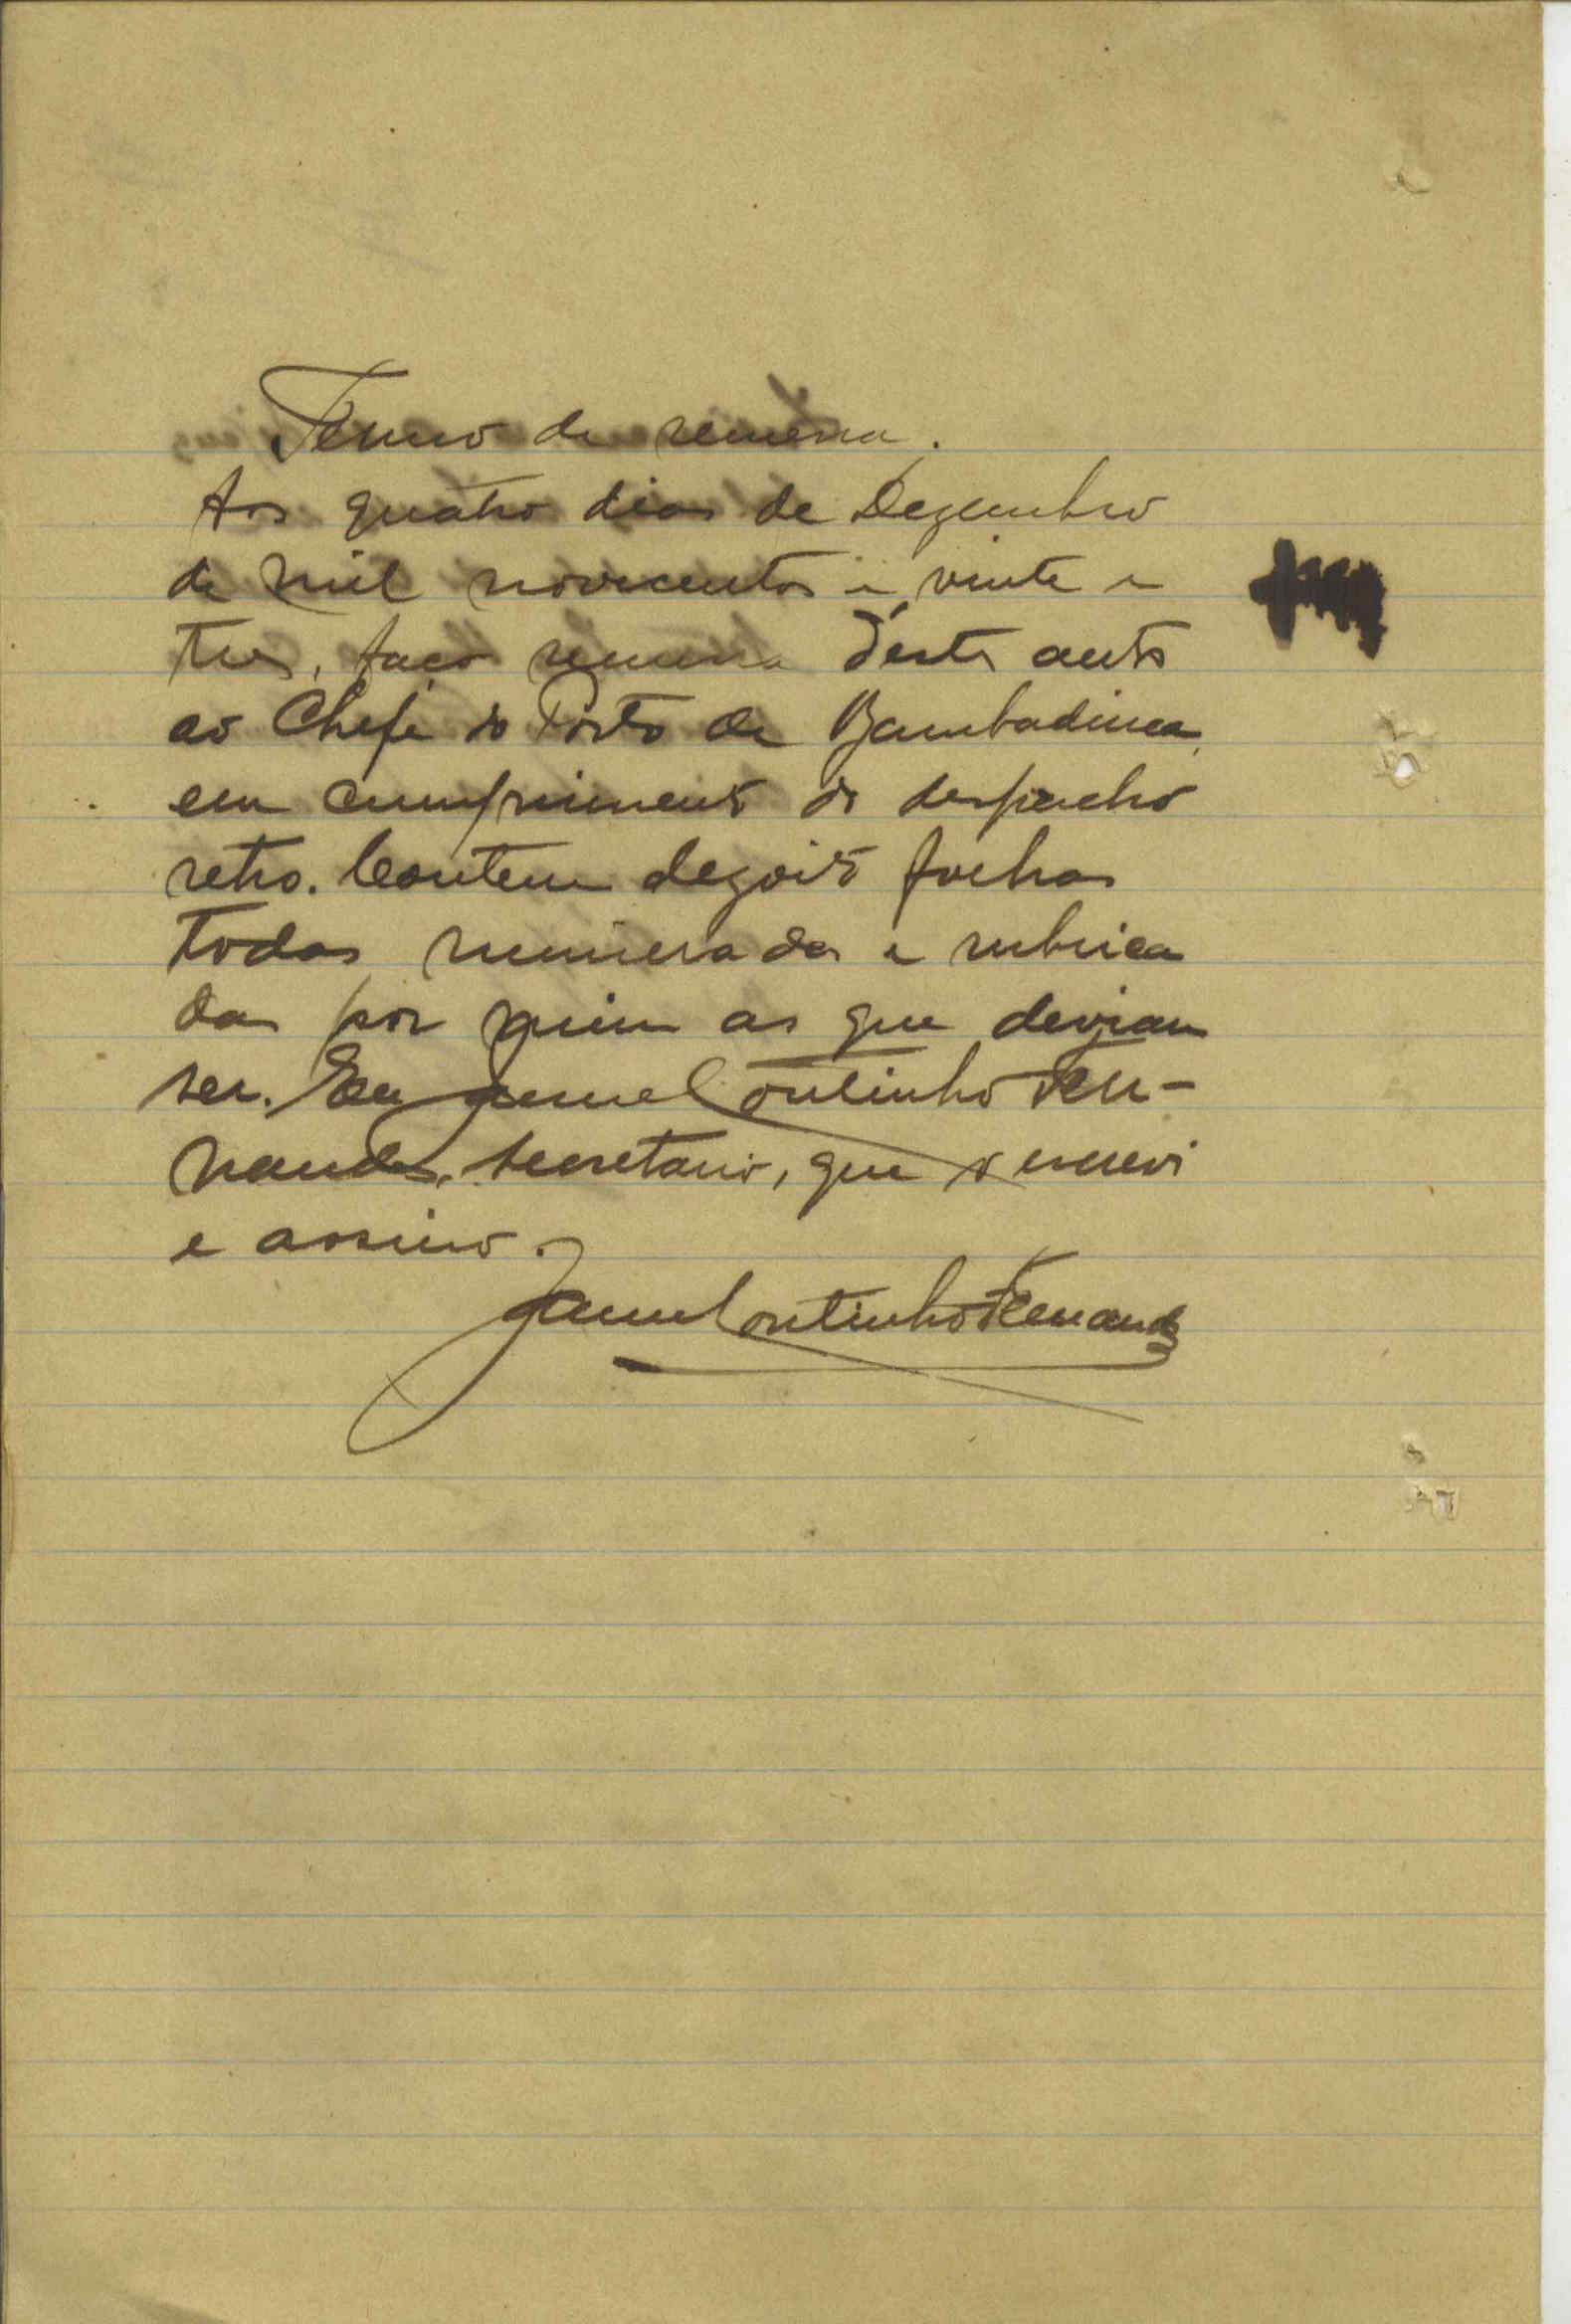 Termo de remessa.
Aos quatro dias de Dezembro
de mil novecentos e vinte e
tres, faço remessa d'este auto
ao Chefe do Posto de Bambadinca
em cumprimento do despacho
retro. Contem dezoito folhas
todas numeradas e rubrica
das por quem as que deviam
ser. Eu Jaime Coutinho Fer-
nandes, secretario, que o escrevi
e assino.
Jaime Coutinho Fernandes